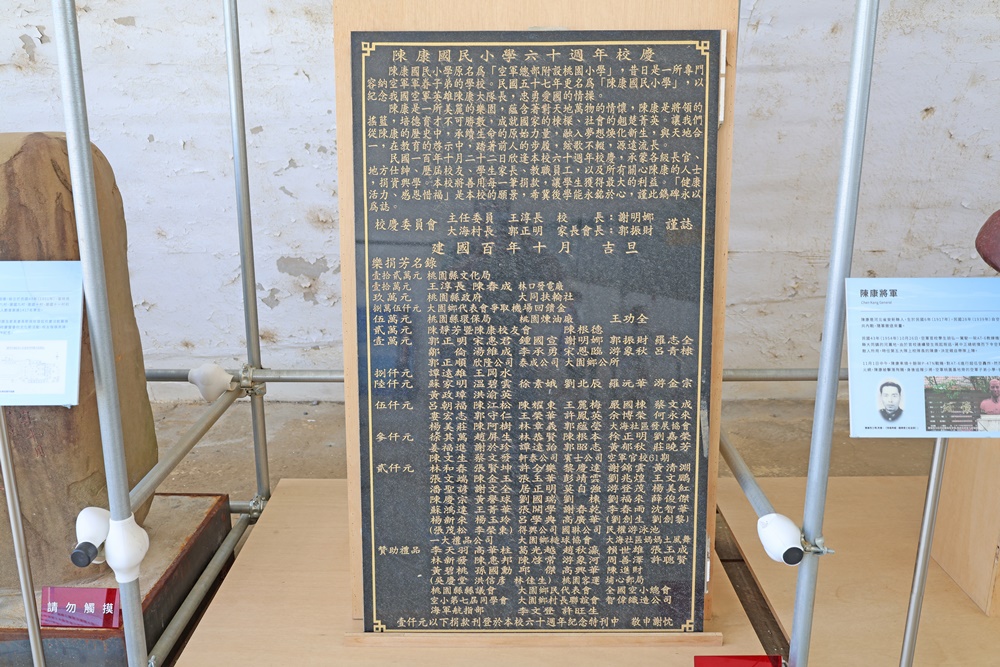 陳康國民小學六十週年校慶
陳康國民小學原名為「空軍總部附設桃園小學」，昔日是一所專門
容納空軍軍眷子弟的學校。民國五十七年更名為「陳康國民小學」，以
紀念我國空軍英雄陳康大隊長，忠勇愛國的情操。
陳康是一所美麗的樂園，蘊含著對天地萬物的情懷，陳康是將領的
搖籃，培德育才不可勝數，成就國家的棟樑、社會的翹楚菁英。讓我們
從陳康的歷史中，承續生命的原始力量，融入夢想煥化新生，與天地合
一，在教育的啓示中，踏著前人的步履，絃歌不輟，源遠流長。
民國一百年十月二十二日欣逢本校六十週年校慶，承蒙各級長官、
地方仕紳、歷屆校友、學生家長、教職員工，以及所有關心陳康的人士
，捐資興學。本校將善用每一筆捐款，讓學生獲得最大的利益。「健康
活力、感恩惜福」是本校的願景，希冀後學能永銘於心，謹此鐫碑永以
為誌。
校慶委員會 主任委員 王淳長 校 長：謝明娜 謹誌
大海村長 郭正明 家長會長：郭振財
建國百年十月 吉旦
樂捐芳名錄
壹拾貳萬元 桃園縣文化局
壹拾萬元 王淳長 陳春成 林口發電廠
玖萬元 桃園縣政府 大同扶輪社
捌萬伍仟元 大園鄉代表會爭取機場回饋金
伍萬元 桃園縣環保局 桃園煉油廠 王功全
貳萬元 陳靜芳暨陳康校友會 陳根德
壹萬元 郭正明 宋惠君 鍾國宣 謝明娜 郭振財 羅志全
鄒 倫 湯維成 李承勇 宋恩臨 游象秋 呂青棣
郭正順 欣隆公司 泰成公司 大園鄉公所
捌仟元 譚遠雄 王岡水
陸仟元 蘇家明 溫碧雲 徐素娥 劉北辰 羅沅華 游金宗
黃政璋 洪渝英
伍仟元 呂朝福 陳江松 陳賴東 王麗梅 嚴國棟 蔡文成
婁宏志 郭守仁 王榮華 許鳳英 余博榮 何永來
楊美莊 陳阿樹 林章義 郭蘊瑩 大海社區發展協會
參仟元 徐其萬 趙屏生 林恭賢 陳根本 徐正明 劉嘉榮
姜福進 謝於珍 譚遠詒 郭昭志 黃郁秋 莊曉芳
陳文生 蔡文發 軒泰公司 賓士公司 空軍官校61期
貳仟元 林和春 張賢坤 許金樂 黎慶達 謝錦雲 黃清淵
張文瑞 陳金玉 張玉華 彭靖雲 劉兆煌 王文鵬
潘聖諺 謝文全 居正明 莫自強 游登茂 楊美紅
陳慶宗 黃馨球 劉國瑞 劉 棟 劉福來 薛俊傑
蘇鴻遠 王菁華 張閙學 謝春乾 李春雨 沈智華
楊新來 楊玉玲 呂學典 高廣華 (劉創生 劉創黎)
(張茂松 李榮東) 得興公司 國聯公司 民權游泳池
一大禮品公司 大園鄉槌球協會 大海社區媽媽土風舞
贊助禮品 李天羽 高華柱 葛光越 趙秋瀛 賴世雄 張玉成
林新發 陳惠邦 陳啓常 游象河 周善澤 許聰賢
黃碧桃 孫國勳 邱 傑 高興華 陳進財
(吳慶堂 洪信彥 林佳生) 桃園客運 埔心郵局
桃園縣縣議會 大園鄉民代表會 全國空小總會
空小第七屆同學會 大園鄉村長聯誼會 智偉織造公司
海軍航指部 李文登 許旺生
壹仟元以下捐款刊登於本校六十週年紀念特刊中 敬申謝忱
請勿觸摸
陳康將軍